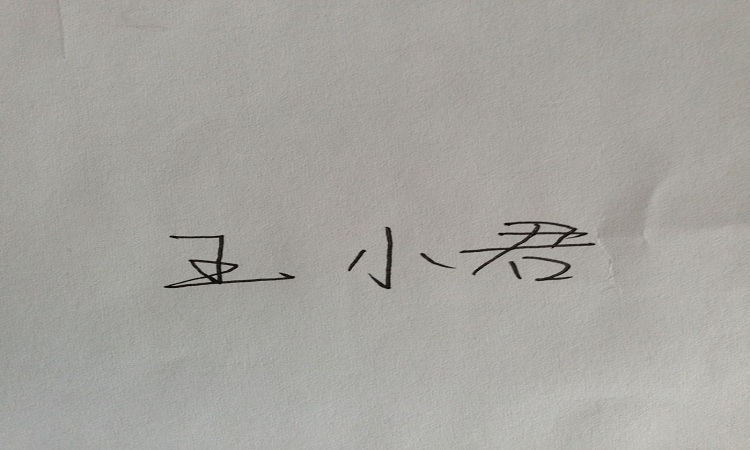 王小君